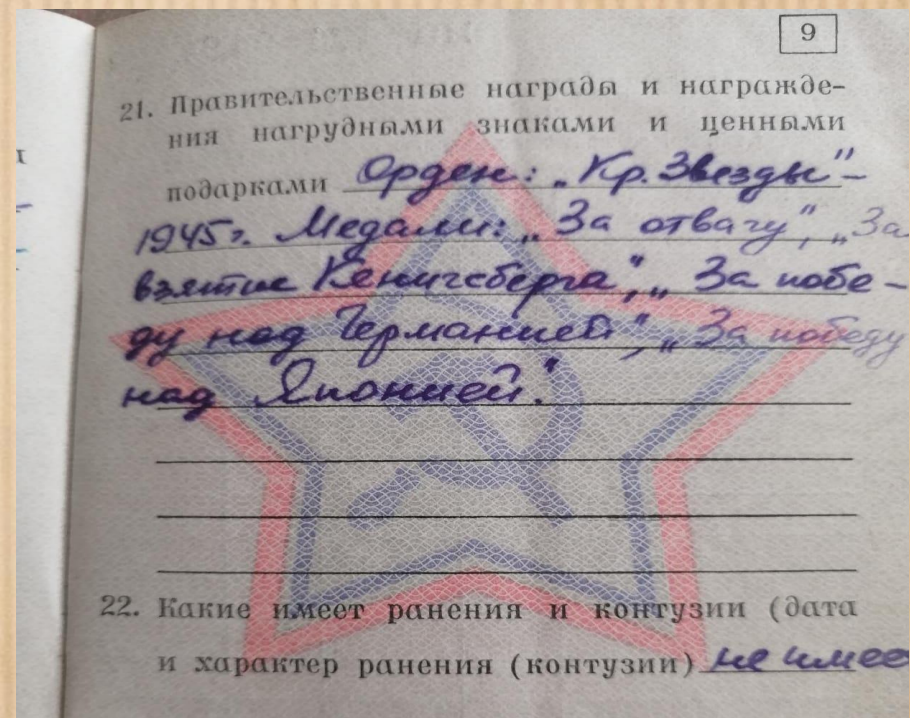 9
21. Правительственные награды и награжде-
ния нагрудными знаками и ценными
подарками Орден: „Кр. Звезды"-
1945г. Медали: „За отвагу", „За
взятие Кенигсберга", „За побе-
ду над Германией", „За победу
над Японией".
22. Какие имеет ранения и контузии (дата
и характер ранения (контузии) не имее